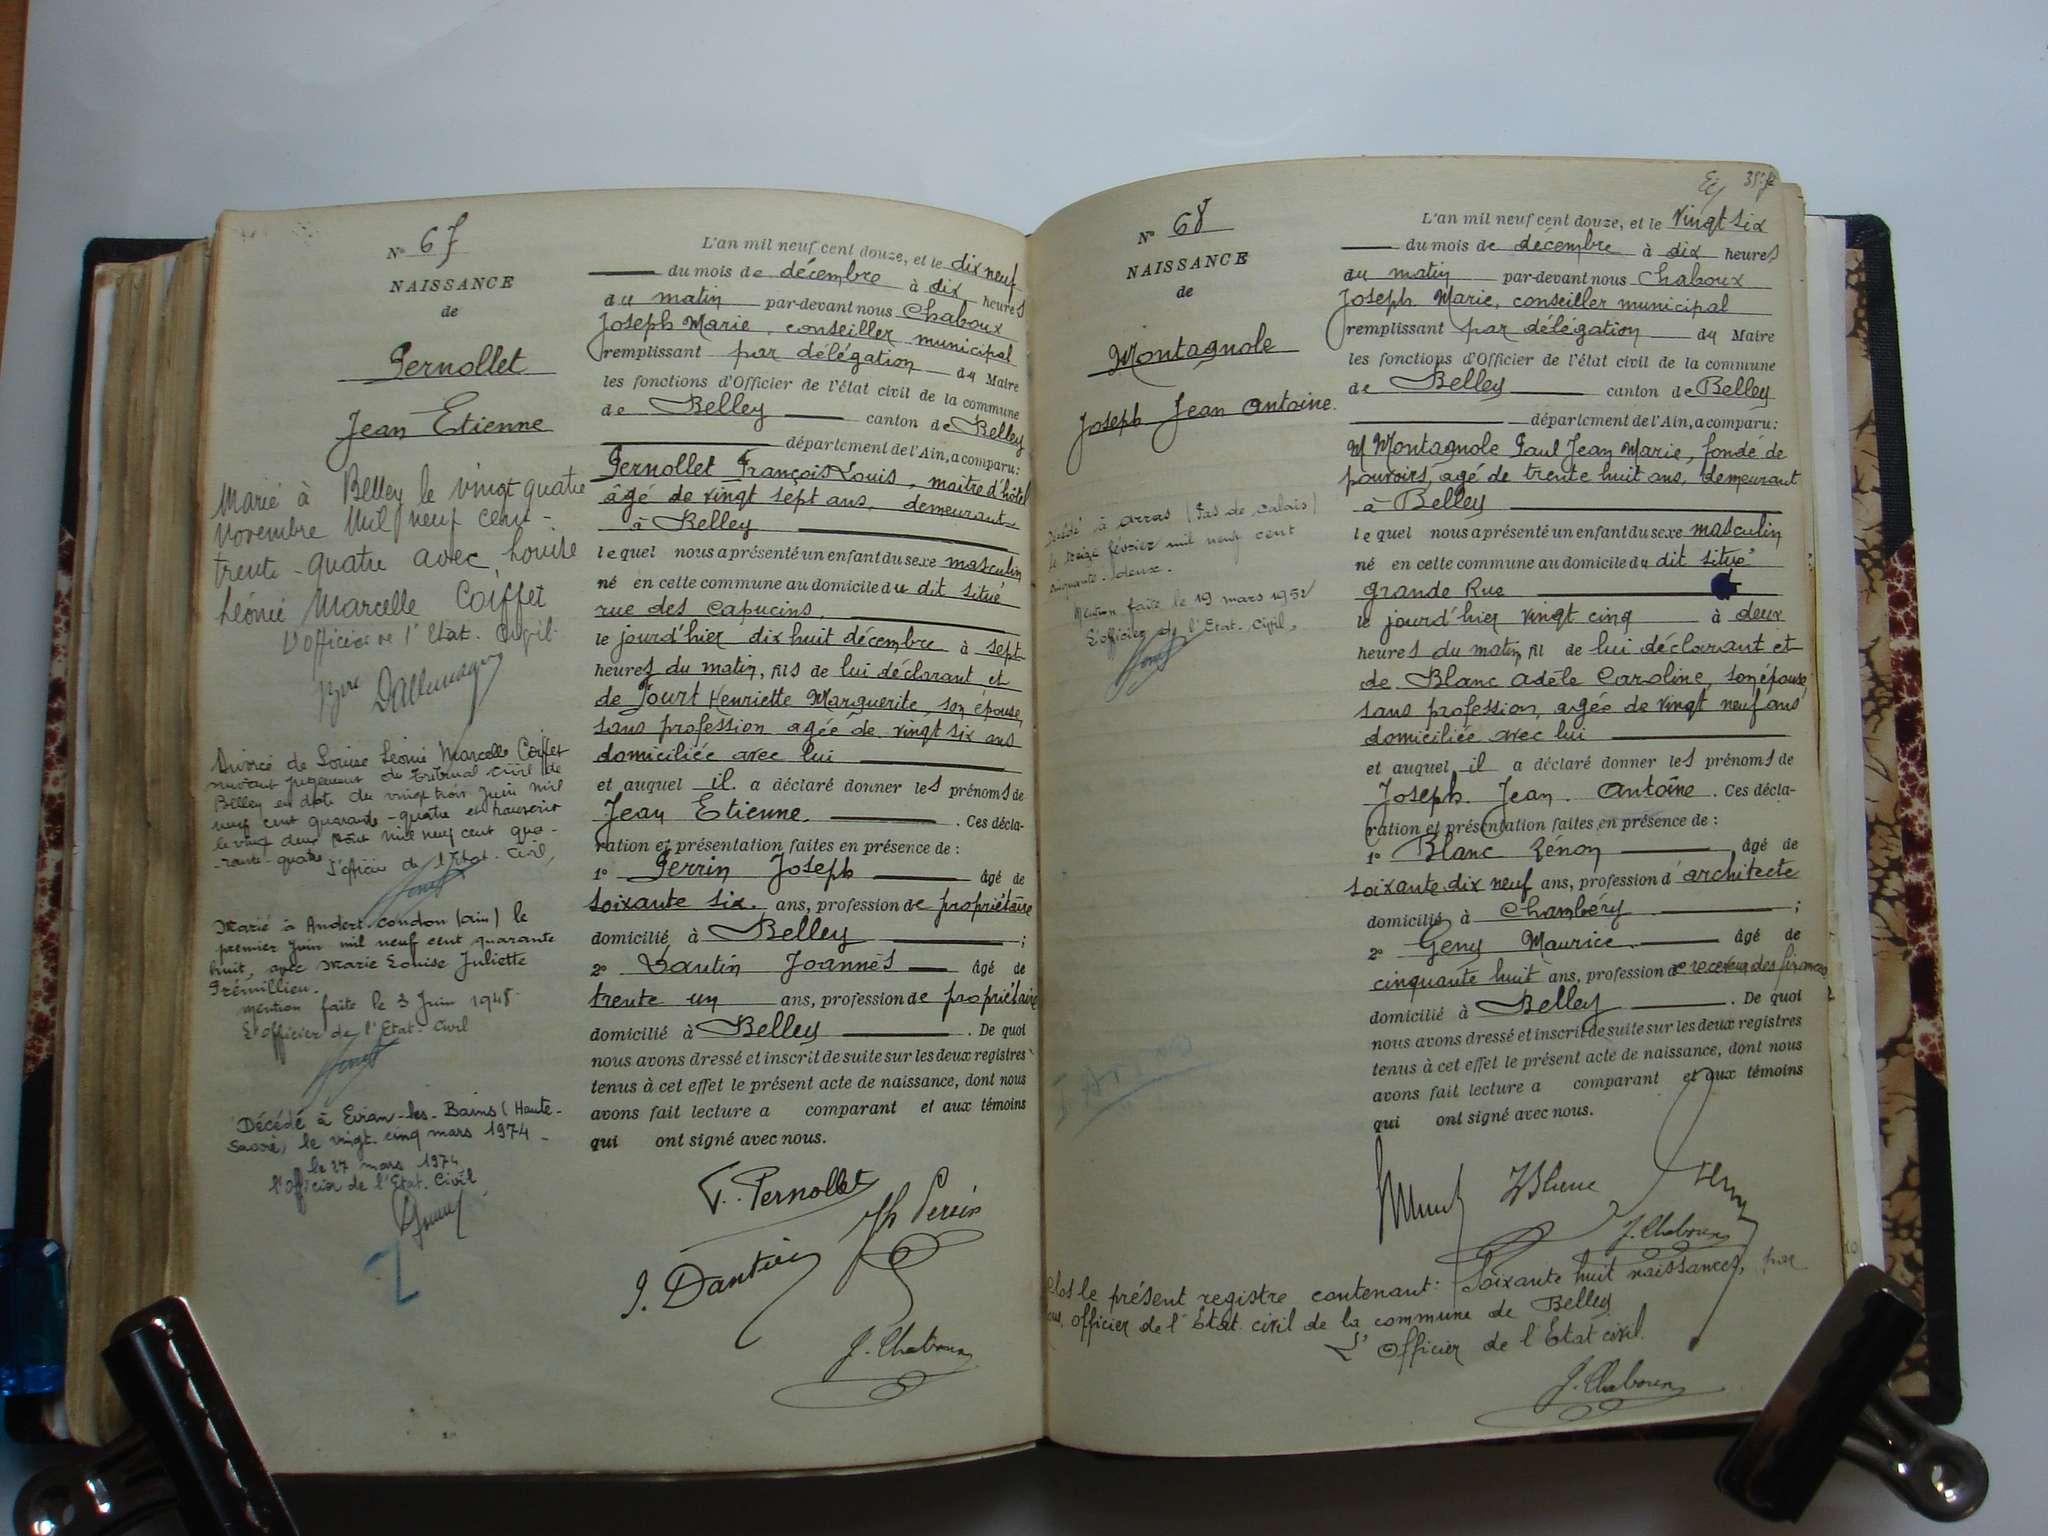 N° 67
NAISSANCE
de
Pernollet
Jean Etienne
Marié à Belley le vingt quatre
Novembre Mil neuf cent
trente-quatre avec Louise
Léonie Marcelle Coiffet
L'officier de l'Etat-Civil
Divorcé de Louise Léonie Marcelle Coiffet
suivant jugement du tribunal civil de
Belley en date du vingt trois juin mil
neuf cent quarante-quatre et transcrit
le vingt deux Août mil neuf cent qua-
-rante-quatre
L'officier de l'Etat-Civil,
Marié à Andert-Condon (Ain) le
premier juin mil neuf cent quarante
huit, avec Marie Louise Juliette
Prémillieu.
Mention faite le 3 Juin 1948
L'officier de l'Etat-Civil
Décédé à Evian-les-Bains (Haute-
Savoie) le vingt-cinq mars 1974 -
le 27 mars 1974
l'Officier de l'Etat-Civil
2
L'an mil neuf cent douze, et le dix neuf
du mois de décembre à dix heures
du matin par-devant nous Chaboux
Joseph Marie, conseiller municipal
remplissant par délégation du Maire
les fonctions d'Officier de l'état civil de la commune
de Belley canton de Belley
département de l'Ain, a comparu:
Pernollet François Louis, maître d'hôtel
âgé de vingt sept ans, demeurant
à Belley
lequel nous a présenté un enfant du sexe masculin
né en cette commune au domicile du dit situé
rue des Capucins,
le jourd'hier dix huit décembre à sept
heures du matin, fils de lui déclarant et
de Jourt Henriette Marguerite, son épouse,
sans profession agée de vingt six ans
domiciliée avec lui
et auquel il a déclaré donner les prénoms de
Jean Etienne. . Ces décla-
ration et présentation faites en présence de :
1° Perrin Joseph âgé de
soixante six ans, profession de propriétaire
domicilié à Belley ;
2° Dantin Joannès âgé de
trente un ans, profession de propriétaire
domicilié à Belley . De quoi
nous avons dressé et inscrit de suite sur les deux registres
tenus à cet effet le présent acte de naissance, dont nous
avons fait lecture a comparant et aux témoins
qui ont signé avec nous.
F. Pernollet
Jh Perrin
J. Dantin
J. Chaboux
N° 68
NAISSANCE
de
Montagnole
Joseph Jean Antoine.
Décédé à Arras (Pas de Calais)
le treize février mil neuf cent
cinquante-deux.
Mention faite le 19 mars 1952
L'officier de l'Etat-Civil,
L'an mil neuf cent douze, et le vingt six
du mois de décembre à dix heures
du matin par-devant nous Chaboux
Joseph Marie, conseiller municipal
remplissant par délégation du Maire
les fonctions d'Officier de l'état civil de la commune
de Belley canton de Belley
département de l'Ain, a comparu:
M Montagnole Paul Jean Marie, fondé de
pouvoirs, agé de trente huit ans, demeurant
à Belley
lequel nous a présenté un enfant du sexe masculin
né en cette commune au domicile du dit situé
grande Rue
le jourd'hier vingt cinq à deux
heures du matin, fil de lui déclarant et
de Blanc Adèle Caroline, son épouse
sans profession, agée de vingt neuf ans
domiciliée avec lui
et auquel il a déclaré donner les prénoms de
Joseph. Jean. Antoine . Ces décla-
ration et présentation faites en présence de :
1° Blanc Zénon âgé de
soixante dix neuf ans, profession d'architecte
domicilié à Chambéry ;
2° Geny Maurice âgé de
cinquante huit ans, profession de receveur des finances
domicilié à Belley . De quoi
nous avons dressé et inscrit de suite sur les deux registres
tenus à cet effet le présent acte de naissance, dont nous
avons fait lecture a comparant et aux témoins
qui ont signé avec nous.
ZBlanc
J. Chaboux
Clos le présent registre contenant: Soixante huit naissances, par
nous, officier de l'Etat civil de la commune de Belley
L'Officier de l'Etat civil.
J. Chaboux